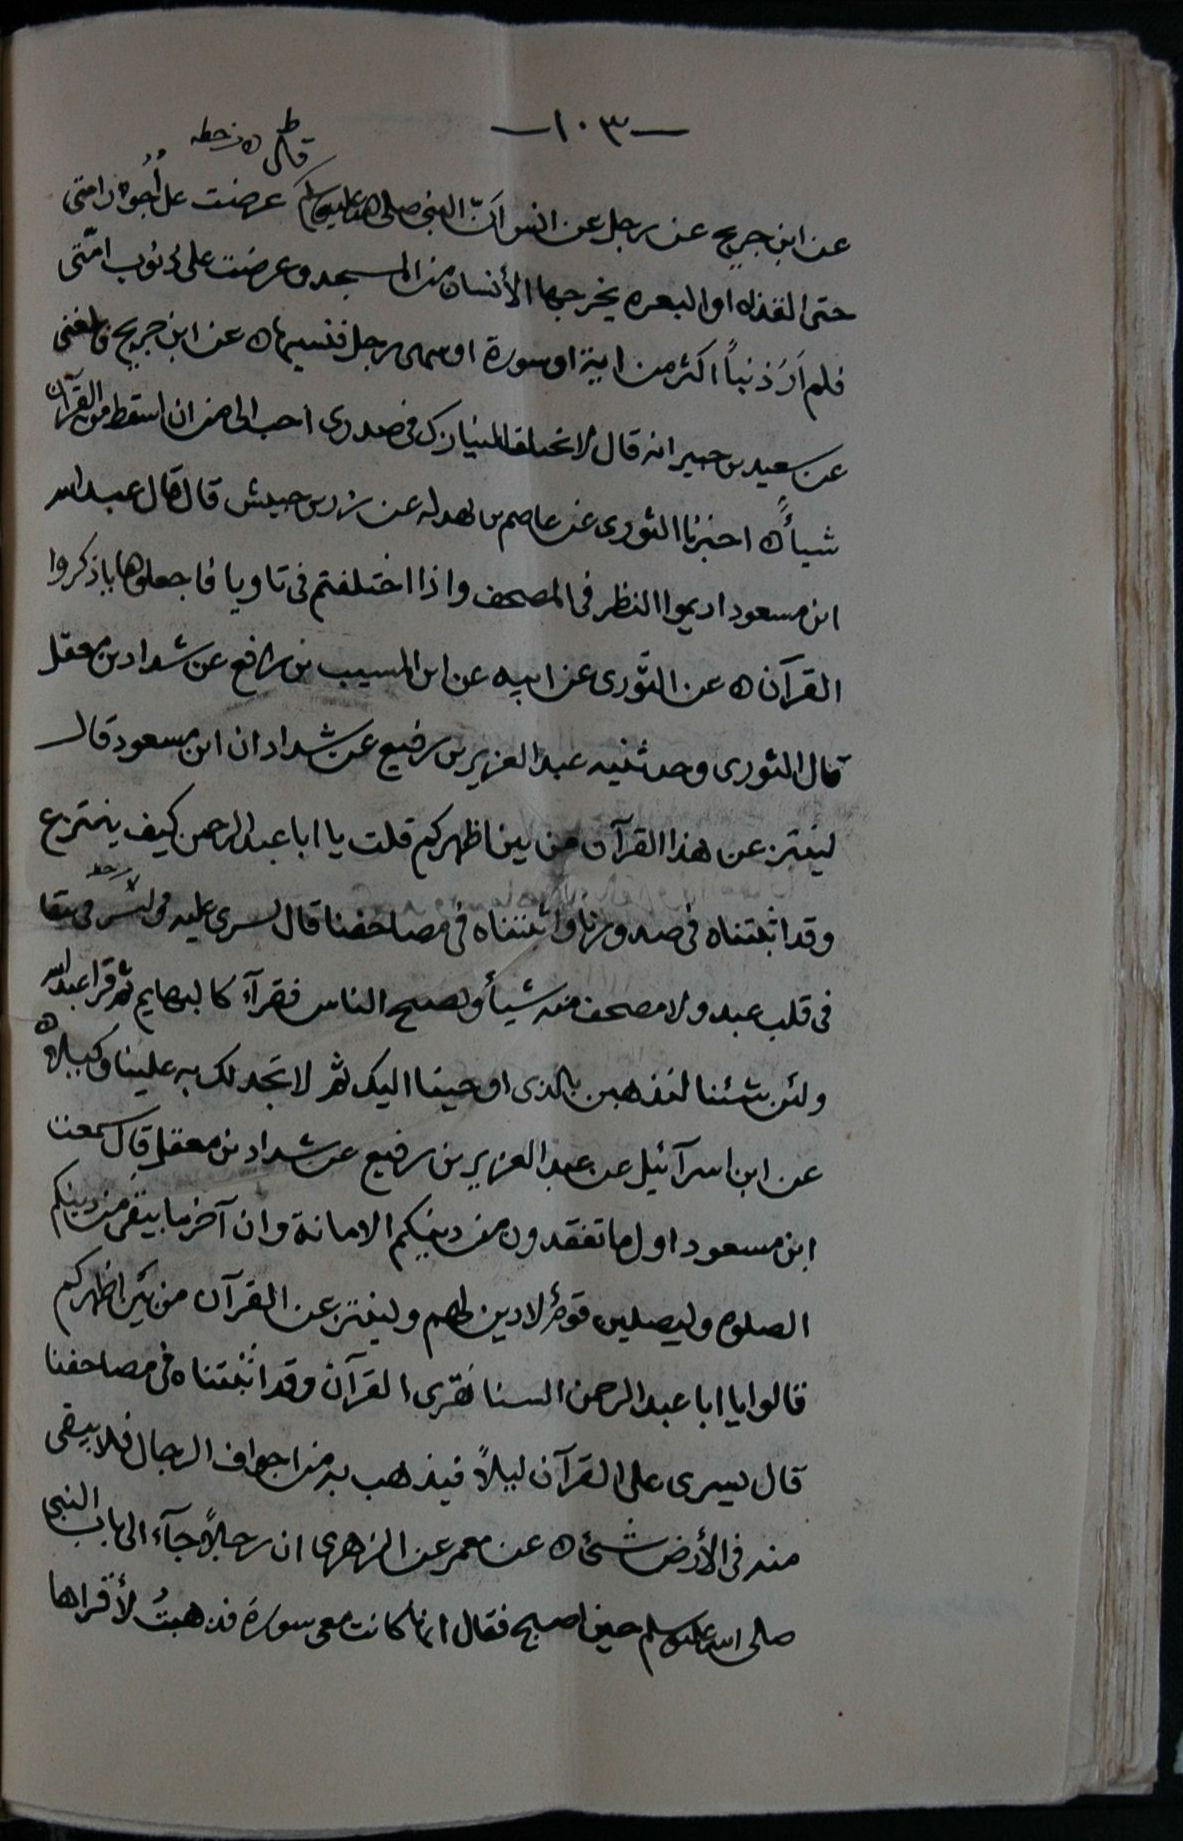 —١٠٣—
قال
عن ابن جريج عن رجل عن انس اَنّ النبى صلى الله عليه وسلم عرضت على اُجُور امتى
حتى القذاه او البعره يخرجها الأنسان من المسجد وعرضت على ذنوب امّتى
فلم اَرَ ذنباً اكثر من اية او سورة اوسها رجل فنسيها ه عن ابن جريج قال بلغنى
عن سعيد بن جبير انه قال لا تختلف النيازك فى صدرى احب الى من ان اسقط من القرآن
شيأً ه اخبرنا الثورى عن عاصم بن بهدله عن زر بن حبيش قال قال عبد الله
ابن مسعود اديموا النظر فى المصحف واذا اختلفتم فى تا ويا فاجعلوها يا ذكروا
القرآن ه عن الثّورى عن ابيه عن ابن المسيب بن رافع عن شداد بن معقل
قال الثورى وحدثنيه عبد العزيز بن رفيع عن شداد ان ابن مسعود قال
لينتزعن هذا القرآن من بين اظهركم قلت يا ابا عبد الرحمن كيف ينتزع
وقد اثبتناه فى صدورنا واثبتناه فى مصاحفنا قال يسرى عليه فى
فى قلب عبد ولا مصحف منه شيأً ويصبح الناس فقرآء كا لبهايم ثم قرا عبد الله
ولئن شئنا لنذهبن بالذى اوحينا اليك ثم لا تجد لك به علينا وكيلا ه
عن ابن اسرآئيل عن عبد العزيز بن رفيع عن شداد بن معقل قال سمعت
ابن مسعود اول ما تفقدون من دينكم الامانة وان آخر ما يبقى من دينكم
الصلوه وليصلين قومٌ لا دين لهم ولينتزعن القرآن من بين اظهركم
قالوا يا ابا عبد الرحمن السنا نقرى القرآن وقد اثبتناه فى مصاحفنا
قال يسرى على القرآن ليلاً فيذهب به من اجواف الرجال فلا يبقى
منه فى الأرض شئ ه عن معمر عن الزهرى ان رجلاً جآء الى باب النبى
صلى الله عليه وسلم حين اصبح فقال انما كانت معى سورة فذهبتُ لأقراها